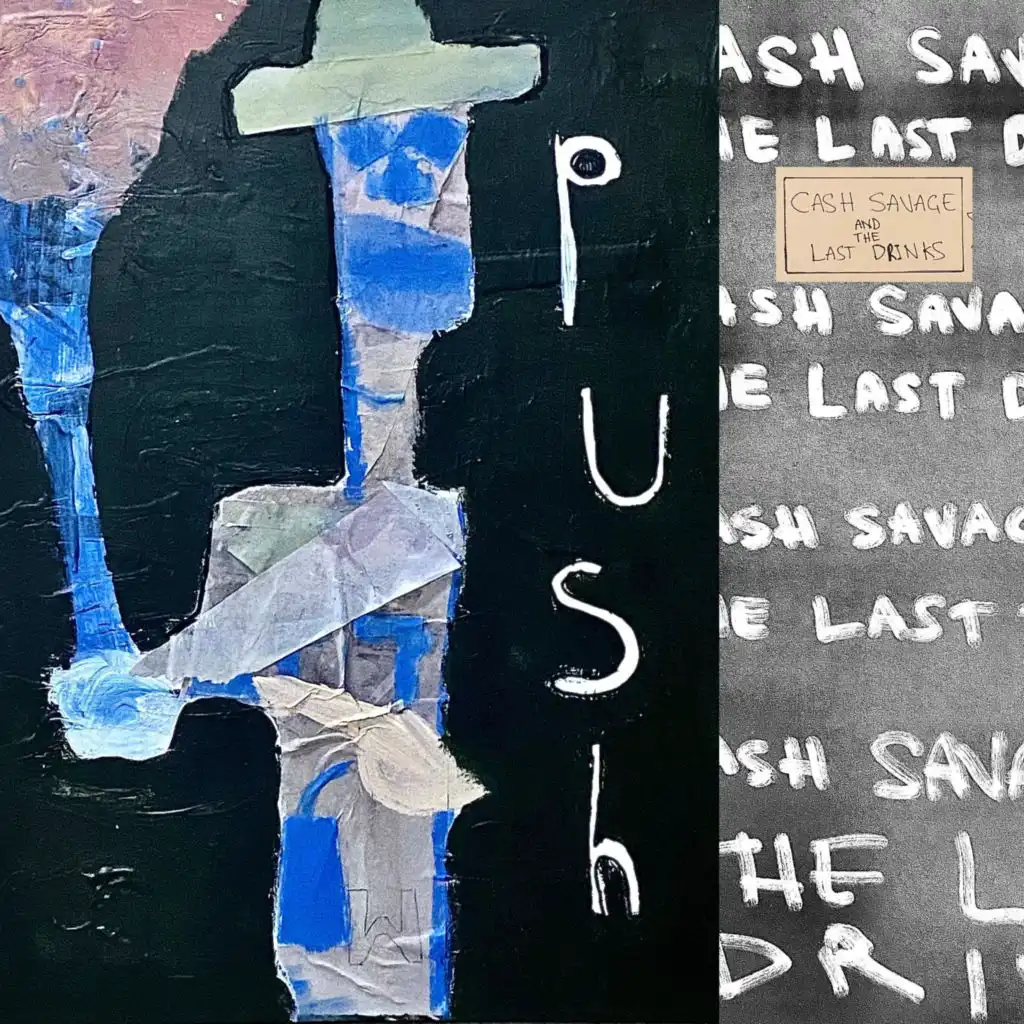 P
U
S
h
ASH SAV
HE LAST D
CASH SAVAGE
AND
THE
LAST DRINKS
ASH SAVA
HE LAST D
ASH SAVAG
HE LAST
ASH SAVA
THE L
DR I